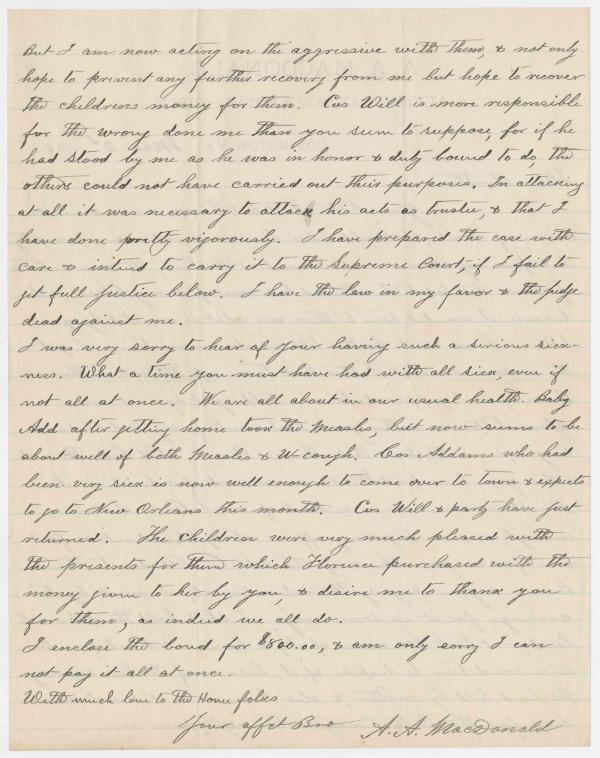 But I am now acting on the aggressive with them, & not only
hope to prevent any further recovery from me but hope to recover
the childrens money for them. Cos Will is more responsible
for the wrong done me than you seem to suppose, for if he
had stood by me as he was in honor & duty bound to do, the
others could not have carried out their purposes. In attacking
at all it was necessary to attack his acts as trustee, & that I
have done pretty vigorously. I have prepared the case with
care & intend to carry it to the Supreme Court, if I fail to
get full justice below. I have the law in my favor & the judge
dead against me.
I was very sorry to hear of your having such a serious sick-
ness. What a time you must have had with all sick, even if
not all at once. We are all about in our usual health. Baby
Add after getting home took the Measles, but now seems to be
about well of both Measles & W cough. Cos Addams who had
been very sick is now well enough to come over to town & expects
to go to New Orleans this month. Cos Will & party have just
returned. The children were very much pleased with
the presents for them which Florence purchased with the
money given to her by you, & desire me to thank you
for them, as indeed we all do.
I enclose the bond for $800.00, & am only sorry I can
not pay it all at once.
With much love to the Home folks
Your affct Bro A. A. MacDonald